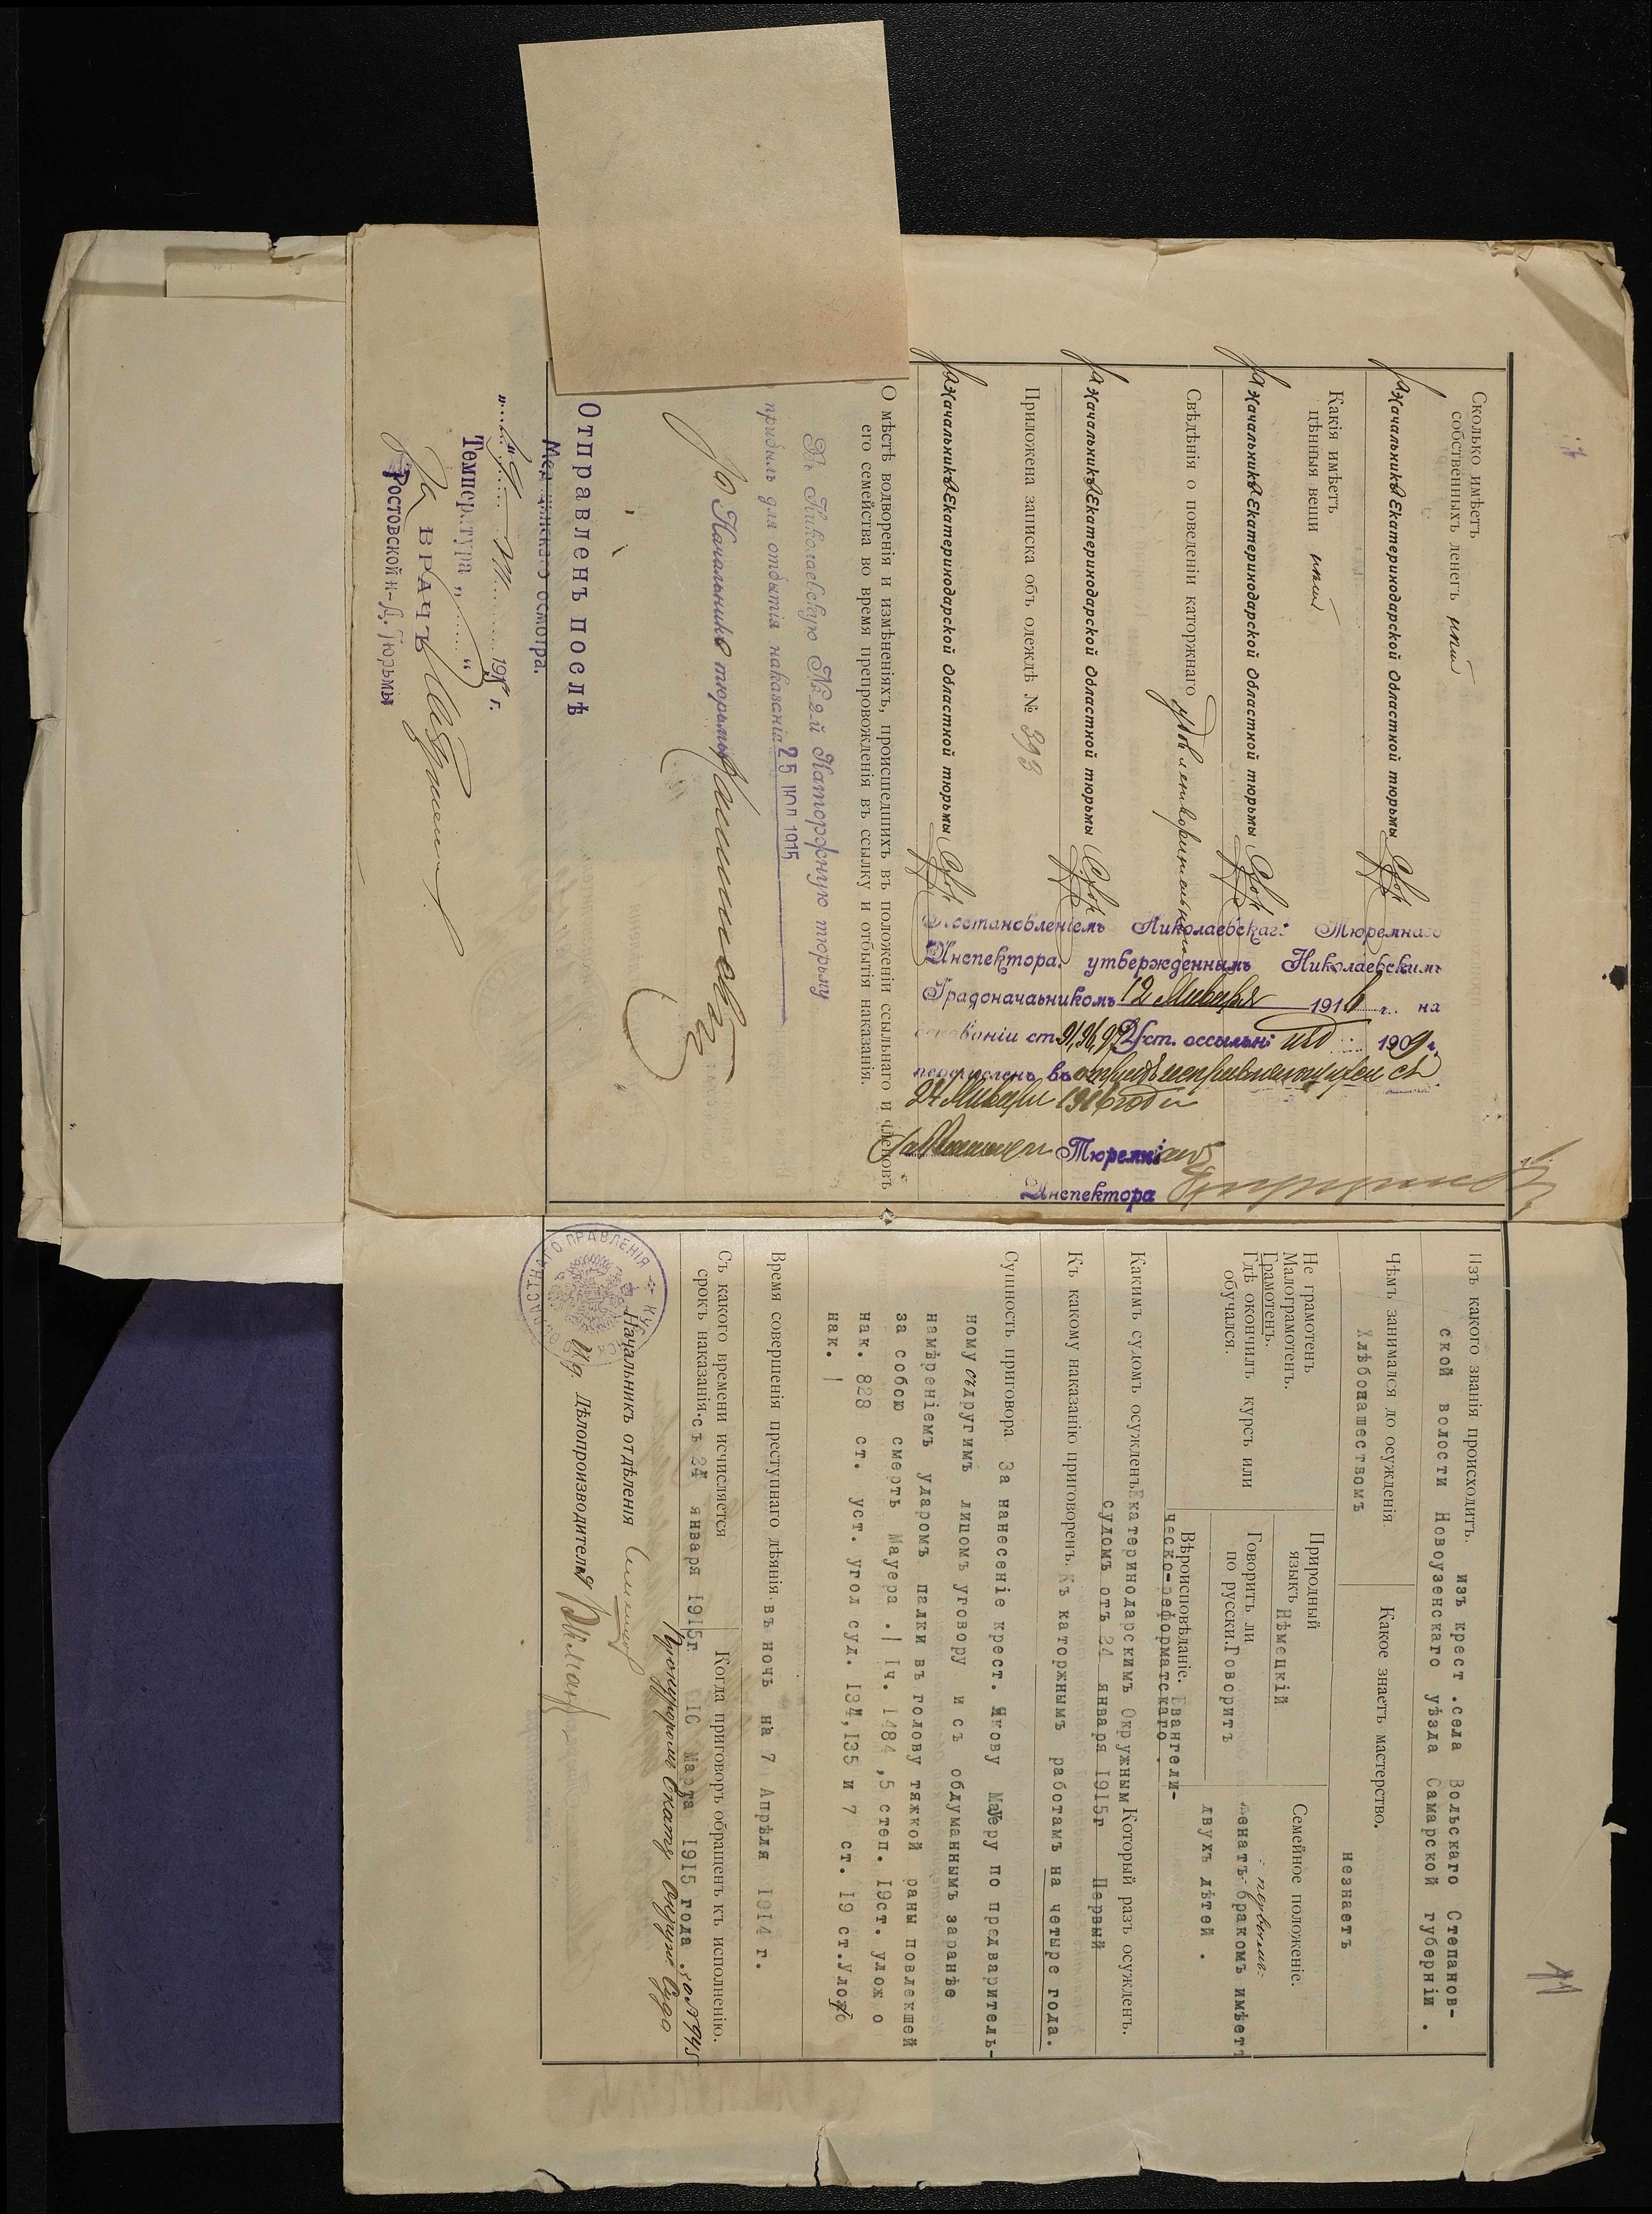 Сколько имѣетъ
собственныхъ денегъ нѣтъ
Начальникъ Екатеринодарской Областной тюрьмы
Какія имѣетъ
цѣнныя вещи нѣтъ
Начальникъ Екатеринодарской Областной тюрьмы
Свѣдѣнія о поведеніи каторжнаго удовлетворительно
Начальникъ Екатеринодарской Областной тюрьмы
Приложена записка объ одеждѣ № 393
Начальникъ Екатеринодарской Областной тюрьмы
Постановленіемъ Николаевскаго Тюремнаго
Инспектора, утвержденнымъ Николаевскимъ
Градоначальникомъ 12 Января 1916 г. на
основаніи ст. 91, 96, Уст. о ссыльн. изд. 1909 г.
перечисленъ въ отрядъ исправляющихся съ
24 Января 1916 года
Тюремн
Инспектора
О мѣстѣ водворенія и измѣненіяхъ, происшедшихъ въ положеніи ссыльнаго и членовъ
его семейства во время препровожденія въ ссылку и отбытія наказанія.
Въ Николаевскую № 2-й Каторжную тюрьму
прибылъ для отбытія наказанія 25 ІЮЛ 1915
Начальникъ тюрьмы
Отправленъ послѣ
Медицинскаго осмотра.
191 г.
Температура „ “
За ВРАЧЪ
Ростовской н-Д. Тюрьмы
Изъ какого званія происходитъ. изъ крест .села Вольскаго Степанов-
ской волости Новоузенскаго уѣзда Самарской губерніи .
Чѣмъ занимался до осужденія.
Хлѣбопашествомъ
Какое знаетъ мастерство.
незнаетъ
Не грамотенъ
Малограмотенъ.
Грамотенъ.
Гдѣ окончилъ курсъ или
обучался.
Природный
языкъ Нѣмецкій
Говоритъ ли
по русски. Говоритъ
Вѣроисповѣданіе. Евангели-
ческо-реформатскаго .
Семейное положеніе.
первымъ
женатъ бракомъ имѣетъ
двухъ дѣтей .
Какимъ судомъ осужденъ Екатеринодарскимъ Окружным
судомъ отъ 24 января 1915г
Который разъ осужденъ.
Первый
Къ какому наказанію приговоренъ. Къ каторжнымъ работамъ на четыре года.
Сущность приговора За нанесеніе крест. Якову Мауеру по предваритель-
ному съ другимъ лицомъ уговору и съ обдуманнымъ заранѣе
намѣреніемъ ударомъ палки въ голову тяжкой раны повлекшей
за собою смерть Мауера . | 1ч. 1484 ,5 степ. 19ст. улож о
нак. 828 ст. уст. угол суд. 134,135 и 7 ст. 19 ст.улож о
нак. |
Время совершенія преступнаго дѣянія. въ ночь на 7 Апрѣля 1914 г.
Съ какого времени исчисляется
срокъ наказанія. съ 24 января 1915г
Когда приговоръ обращенъ къ исполненію.
10 Марта 1915 года
Прокуроромъ Екатер. Окружн. Суда
Начальникъ отдѣленія
И.д. Дѣлопроизводителя